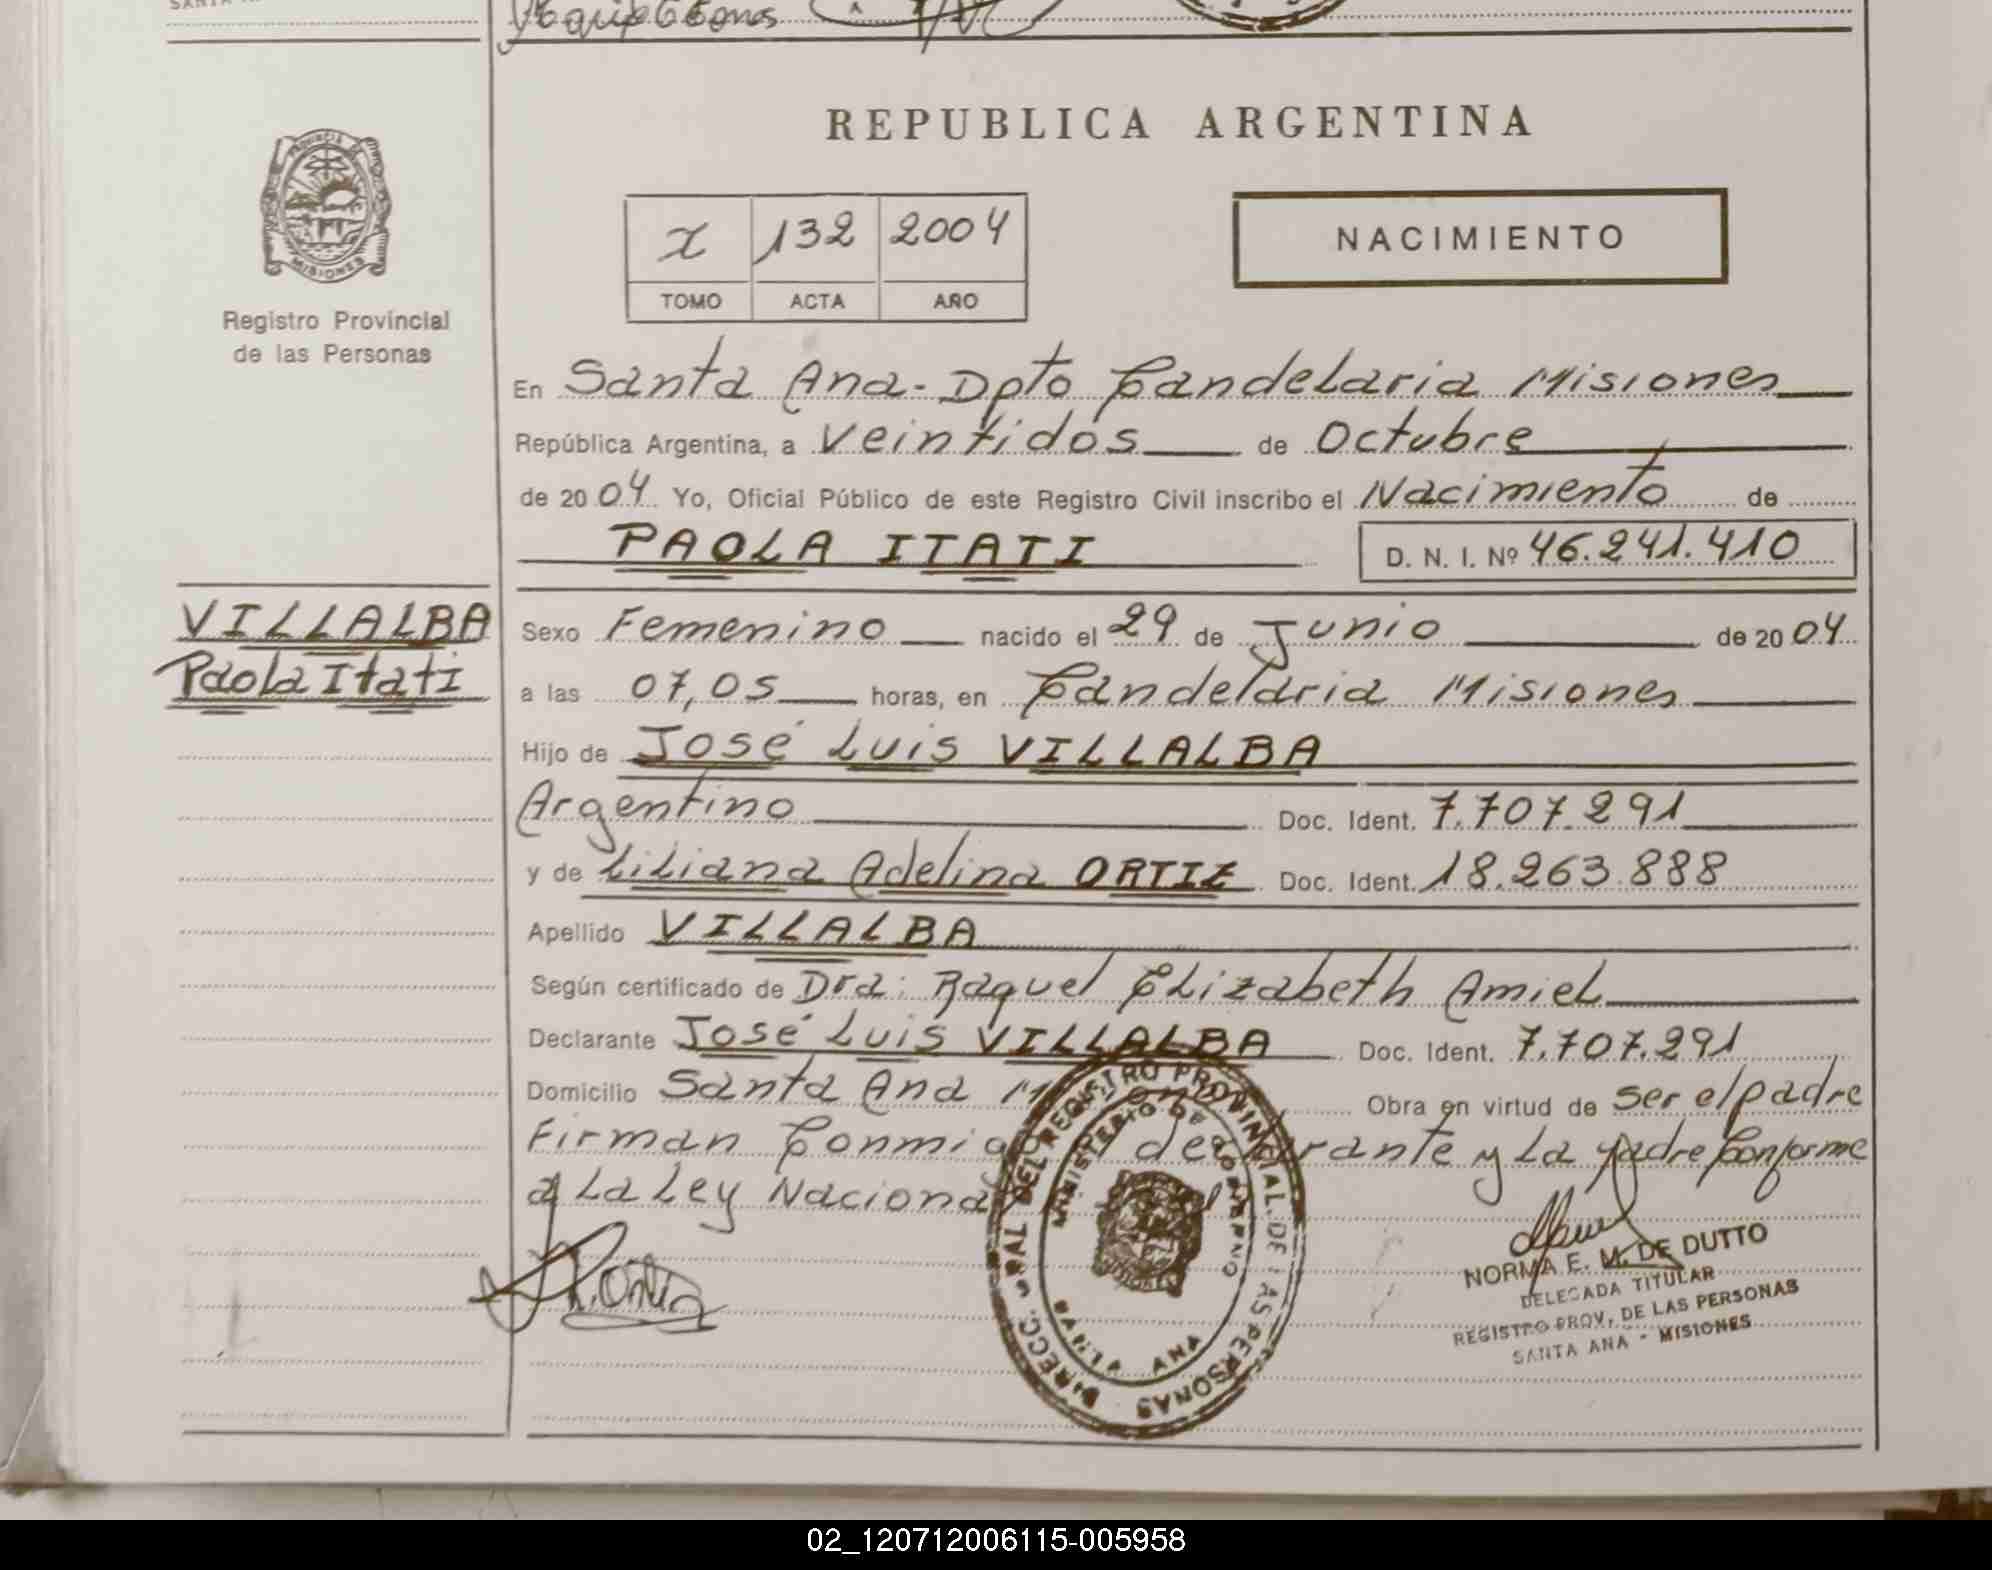 REPUBLICA ARGENTINA
PROVINCIA DE
MISIONES
Registro Provincial
de las Personas
x 132 2004
TOMO ACTA AÑO
NACIMIENTO
En Santa Ana - Dpto Candelaria Misiones
República Argentina, a Veintidós de Octubre
de 2004 Yo, Oficial Público de este Registro Civil inscribo el Nacimiento de
PAOLA ITATI D. N. I. Nº 46.241.410
VILLALBA
Paola Itati
Sexo Femenino nacido el 29 de Junio de 2004
a las 07,05 horas, en Candelaria Misiones
Hijo de José Luis VILLALBA
Argentino Doc. Ident. 7.707.291
y de Liliana Adelina ORTIZ Doc. Ident. 18.263.888
Apellido VILLALBA
Según certificado de Dra: Raquel Elizabeth Amiel
Declarante José Luis VILLALBA Doc. Ident. 7.707.291
Domicilio Santa Ana Obra en virtud de ser el padre
Firman Conmigo declarante y La Madre Conforme
a La Ley Nacional
DIRECC. GRAL DEL REGISTRO PROVINCIAL DE LAS PERSONAS
MINISTERIO DE GOBIERNO
SANTA ANA
NORMA E. M. DE DUTTO
DELEGADA TITULAR
REGISTRO PROV. DE LAS PERSONAS
SANTA ANA - MISIONES
02_120712006115-005958